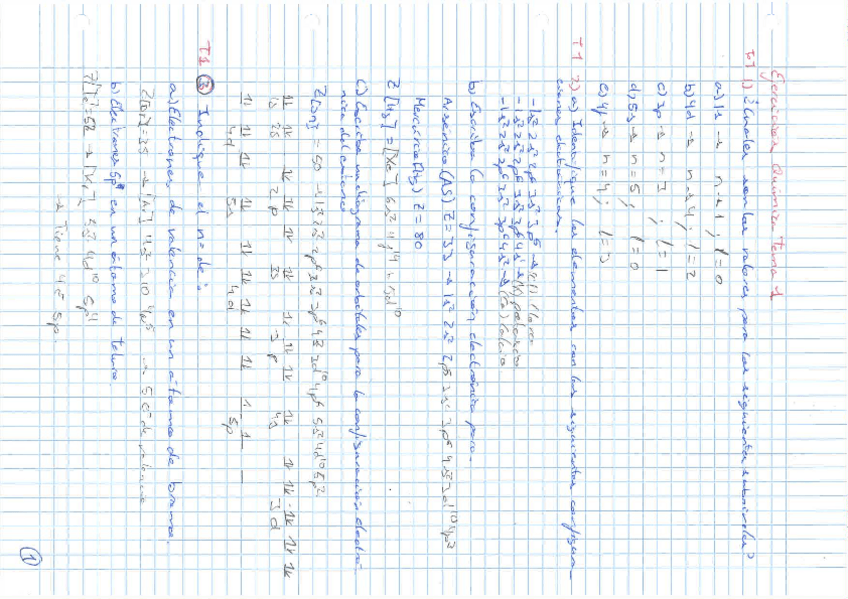 Ejercicios Química tema 1
T1 1) ¿Cuáles son los valores para los siguientes subniveles?
a) 1s → n = 1; l = 0
b) 4d → n = 4; l = 2
c) 3p → n = 3; l = 1
d) 5s → n = 5; l = 0
e) 4f → n = 4; l = 3
T1 2) a) Identifique los elementos con las siguientes configura-
ciones electrónicas.
- 1s² 2s² 2p⁶ 3s² 3p⁵ → (Cl) Cloro
- 1s² 2s² 2p⁶ 3s² 3p⁶ 4s¹ → (K) potasio
- 1s² 2s² 2p⁶ 3s² 3p⁶ 4s² → (Ca) calcio
b) Escriba la configuración electrónica para.
Arsénico (AS) Z = 33 → 1s² 2s² 2p⁶ 3s² 3p⁶ 4s² 3d¹⁰
Mercurio (Hg) Z = 80
Z [Hg] = [Xe] 6s² 4f¹⁴ 5d¹⁰
c) Escriba un diagrama de orbitales para la configuración electró-
nica del
Z[Sn] = 50 → 1s² 2s² 2p⁶ 3s² 3p⁶ 4s² 3d¹⁰ 4p⁶ 5s² 4d¹⁰ 5p²
1s 2s 2p 3s 3p 4s 3d
5s 4d 5p
T1 3) Indique el nº de:
a) Electrones de valencia en un átomo de bromo.
Z[Br] = 35 → [Ar] 4s² 3d¹⁰ 4p⁵ → e⁻ de valencia
b) Electrones 5p en un átomo de teluro.
Z[Te] = 52 → [Kr] 5s² 4d¹⁰ 5p⁴
→ Tiene 4 e⁻ 5p.
1